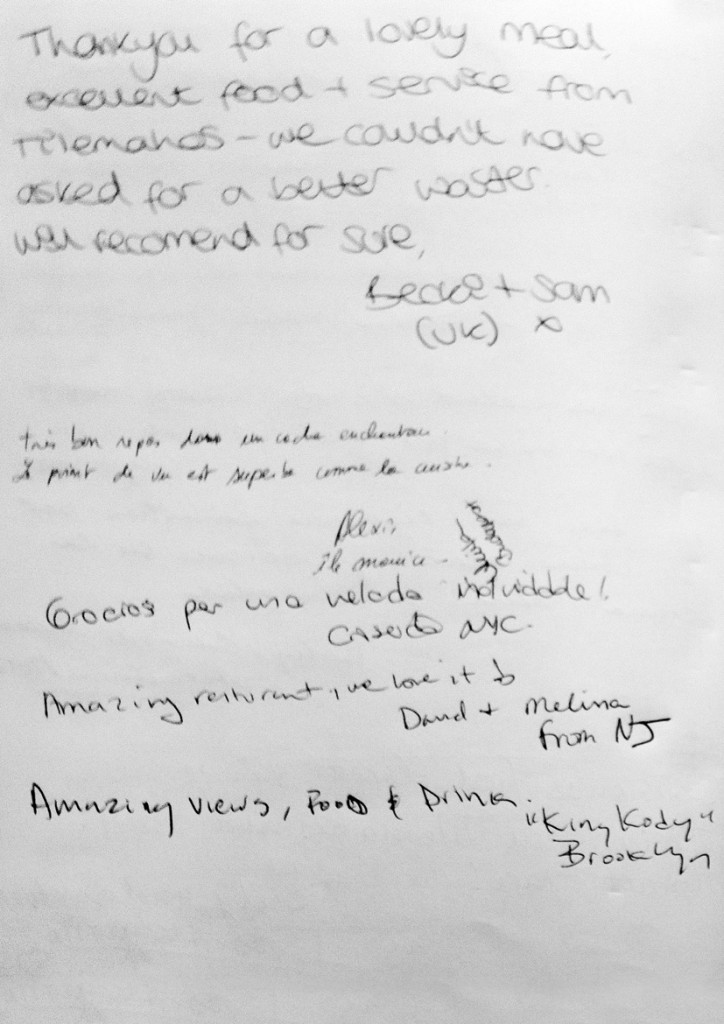 Thankyou for a lovely meal,
excellent food + service from
Telemahos - we couldn't have
asked for a better waiter.
will recomend for sure,
Beckie + Sam
(UK) x
très bon repas dans un cadre enchanteur.
Le point de vu est superbe comme la cuisine.
Alexis
ile maurice -
Gracias por una velada inolvidable!
NYC.
Amazing resturant, we love it
David + Melina
from NJ
Amazing views, Food & Drink.
"King Kody"
Brooklyn